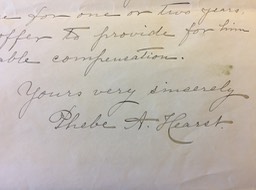 for one or two years.
offer to provide for him
able compensation.
Yours very sincerely
Phebe A. Hearst.